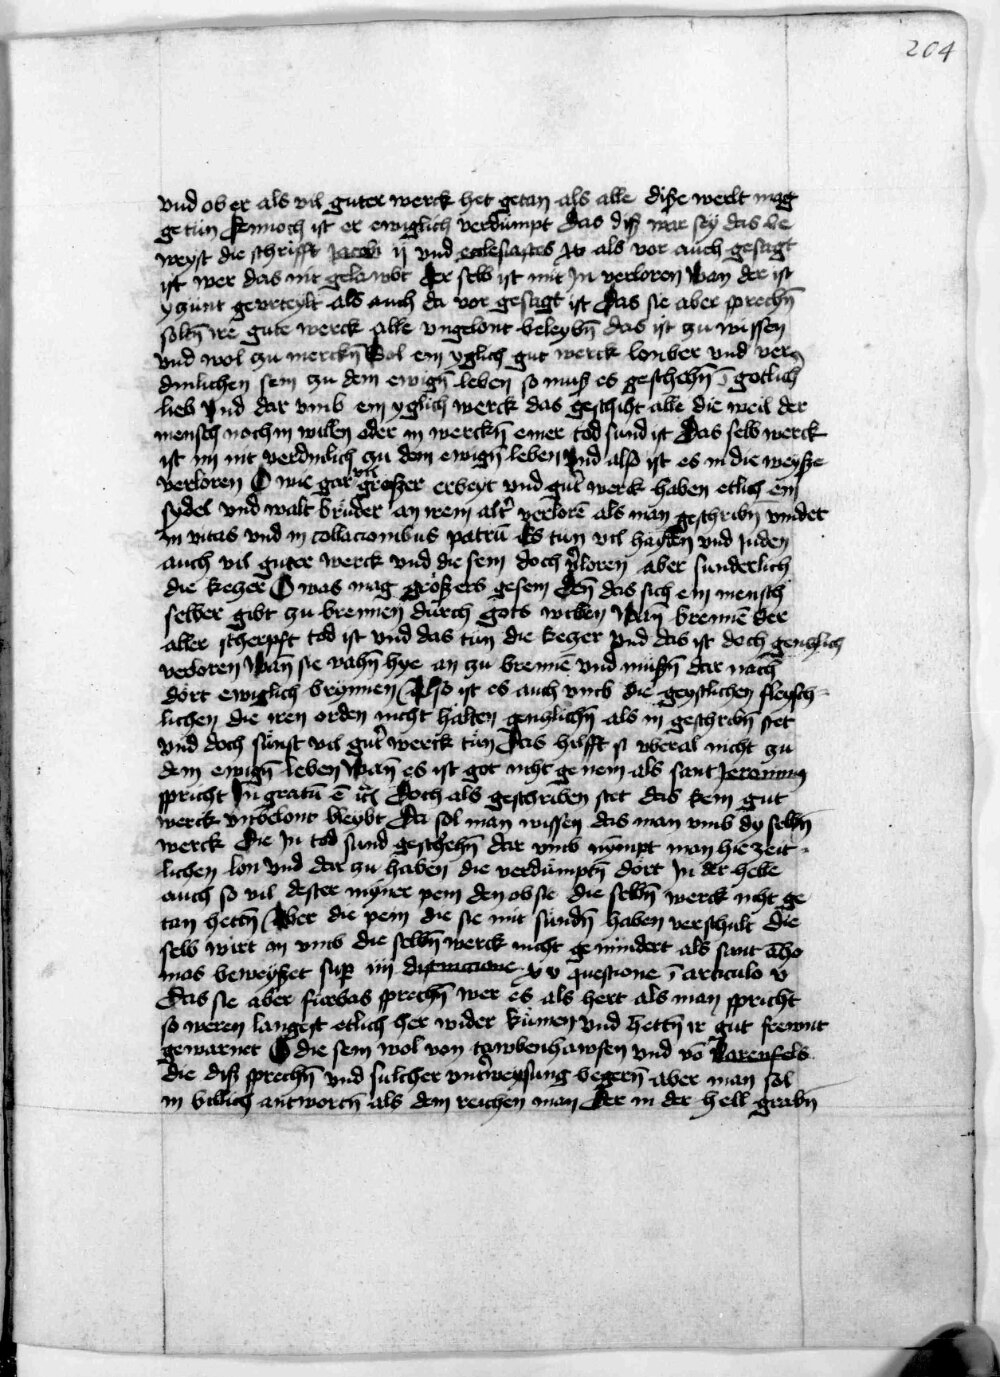 204
vnd ob er als vil guter werck het getan als alle diße werlt mag
getun dennoch ist er ewiglich verdumpt Das diß war sey das be
weyst die schrifft Jacob ij vnd ecclesiastes als vor auch gesagt
ist wer das nit gelawbt Der selb ist mit Jn verloren Wan der ist
yzunt gevrteylt als auch da vor gesagt ist Das sie aber sprechn̄
soltn̄ ire gute werck alle vngelont beleybn̄ das ist zu wissen
vnd wol zu merckn̄ Sol ein yglich gut werck lonber vnd ver
dinlichen sein zu dem ewign̄ leben so muß es geschehn̄ ī gotlich
lieb Vnd dar vmb ein yglich werck das geschiht alle die weil der
mensch noch in willen oder in werckn̄ einer tod sund ist Das selb werck
ist im nit verdinlich zu dem ewign̄ leben Vnd also ist es in die weyße
verloren O wie gar vil großer erbeyt vnd gut̉ werck haben etlich ein
sydel vnd walt bruder an irem alt̉ verlorē als man geschribn̄ vindet
in vitas vnd in collacionibus patrū Es tun vil hayden vnd juden
auch vil guter werck vnd die sein doch v̉loren aber sunderlich
die kezer O was mag großers gesein den̄ das sich ein mensch
selber gibt zu brennen durch gots willen Wan̄ brennē der
aller scherpft tod ist vnd das tun die kezer Vnd das ist doch genzlich
verloren Wan̄ sie vahn̄ hye an zu brennē vnd mußn̄ dar nach
dort ewiglich brynnen Also ist es auch vmb die geystlichen fleysch-
lichen die iren orden nicht halten genzlichn̄ als in geschribn̄ stet
vnd doch sunst vil gut̉ werck tun Das hilfft si vberal nicht zu
dem ewign̄ leben Wan̄ es ist got nicht genem als sant Jeronimus
spricht Doch als geschriben stet das kein gut
werck vnbelont bleybt Da sol man wissen das man vmb dy selbn̄
werck Die Jn tod sund geschehn̄ dar vmb nympt man hie zeit-
lichen lon Vnd dar zu haben die verdamptn̄ dort Jn der helle
auch so vil dester myner pein den ob sie die selbn̄ werck nicht ge
tan hettn̄ Aber die pein die sie mit sundn̄ haben verschult Die
selb wirt in vmb die selbn̄ werck nicht gemindert als sant Tho
mas beweyßet sup̄ iiij distinccione xv questione ī articulo v
Das sie aber furbas sprechn̄ wer es als hert als man spricht
so weren langest etlich her wider kumen vnd hettn̄ ir gut frewnt
gewarnet O die sein wol von tawbenhawsen vnd vō Narenfels
die diß sprechn̄ vnd sulcher vnt̉weysung begern̄ aber man sol
in billich antwortn̄ als dem reichen man Der in der hell grabn̄